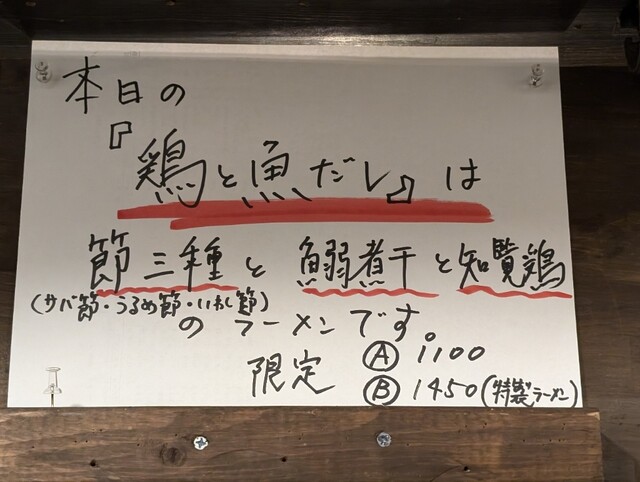 本日の
『鶏と魚だし』は
節三種と鰯煮干と知覧鶏
(サバ節・うるめ節・いわし節)
のラーメンです。
限定 Ⓐ 1100
Ⓑ 1450(特製ラーメン)